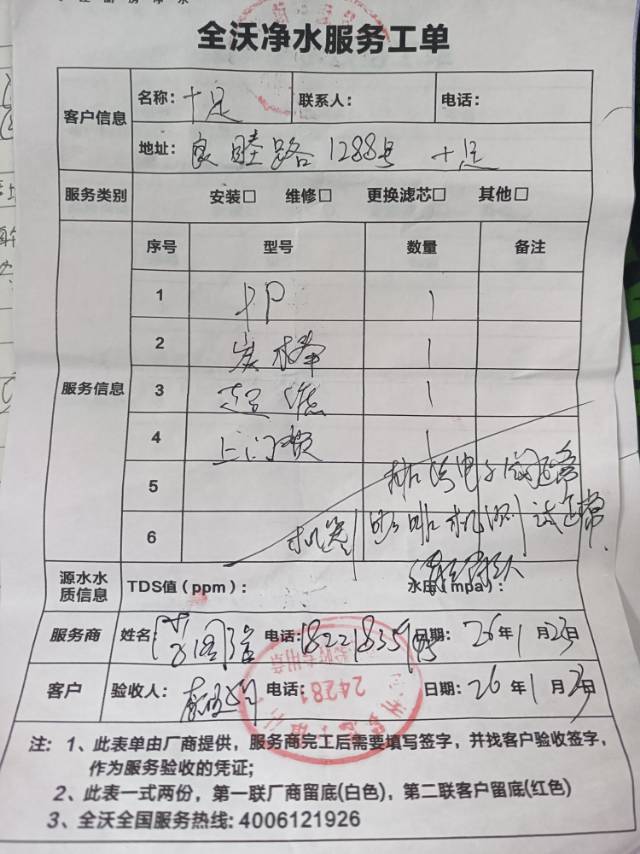 全沃净水服务工单
客户信息
名称：十足
联系人：
电话：
地址：良睦路1288号 十足
服务类别
安装□ 维修□ 更换滤芯□ 其他□
服务信息
序号 型号 数量 备注
1 PP 1
2 炭棒 1
3 1
4 上门费 1
5
6
机器 咖啡机测试正常
源水水质信息
TDS值（ppm）：
水压（mpa）：
服务商 姓名： 电话： 日期：26年1月23日
客户 验收人： 电话： 日期：26年1月23日
24281
注：1、此表单由厂商提供，服务商完工后需要填写签字，并找客户验收签字，
作为服务验收的凭证;
2、此表一式两份，第一联厂商留底(白色)，第二联客户留底(红色)
3、全沃全国服务热线: 4006121926